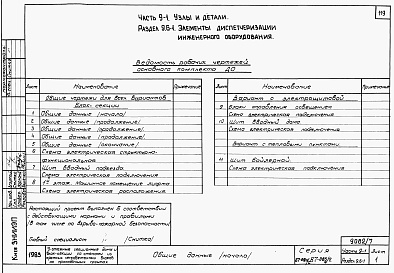 119
Часть 9-1. Узлы и детали.
Раздел 9.6-1. Элементы диспетчеризации
инженерного оборудования.
Ведомость рабочих чертежей
основного комплекта ДО
Лист Наименование Примечание
Общие чертежи для всех вариантов
Блок-секции
1 Общие данные /начало/
2 Общие данные /продолжение/
3 Общие данные /продолжение/
4 Общие данные /продолжение/
5 Общие данные /окончание/
6 Схема электрическая структурно-
функциональная
7 Щит подъезда.
Схема электрическая подключения
8 1й этаж. Машинное помещение лифта
Схема электрическая расположения.
Лист Наименование Примечание
Вариант с электрощитовой
9 управления освещением
Схема электрическая подключения
10 Щит вводный дома
Схема электрическая подключения
Вариант с тепловыми пунктами
11 Щит бойлерной.
Схема электрическая подключения
Настоящий проект выполнен в соответствии
с действующими нормами и правилами
/в том числе по взрыво-пожарной безопасности/
Главный специалист /Снитко/
Киев ЗНИИЭП
1985
Общие данные /начало/
9082/7
Серия
Часть 9-1
Раздел 9.6-1
Лист
1